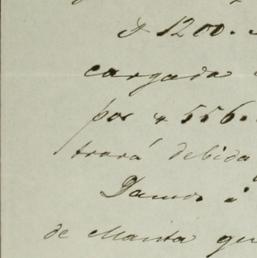 $ 1200.
cargada
por $ 556.
trará debida
de Manta que